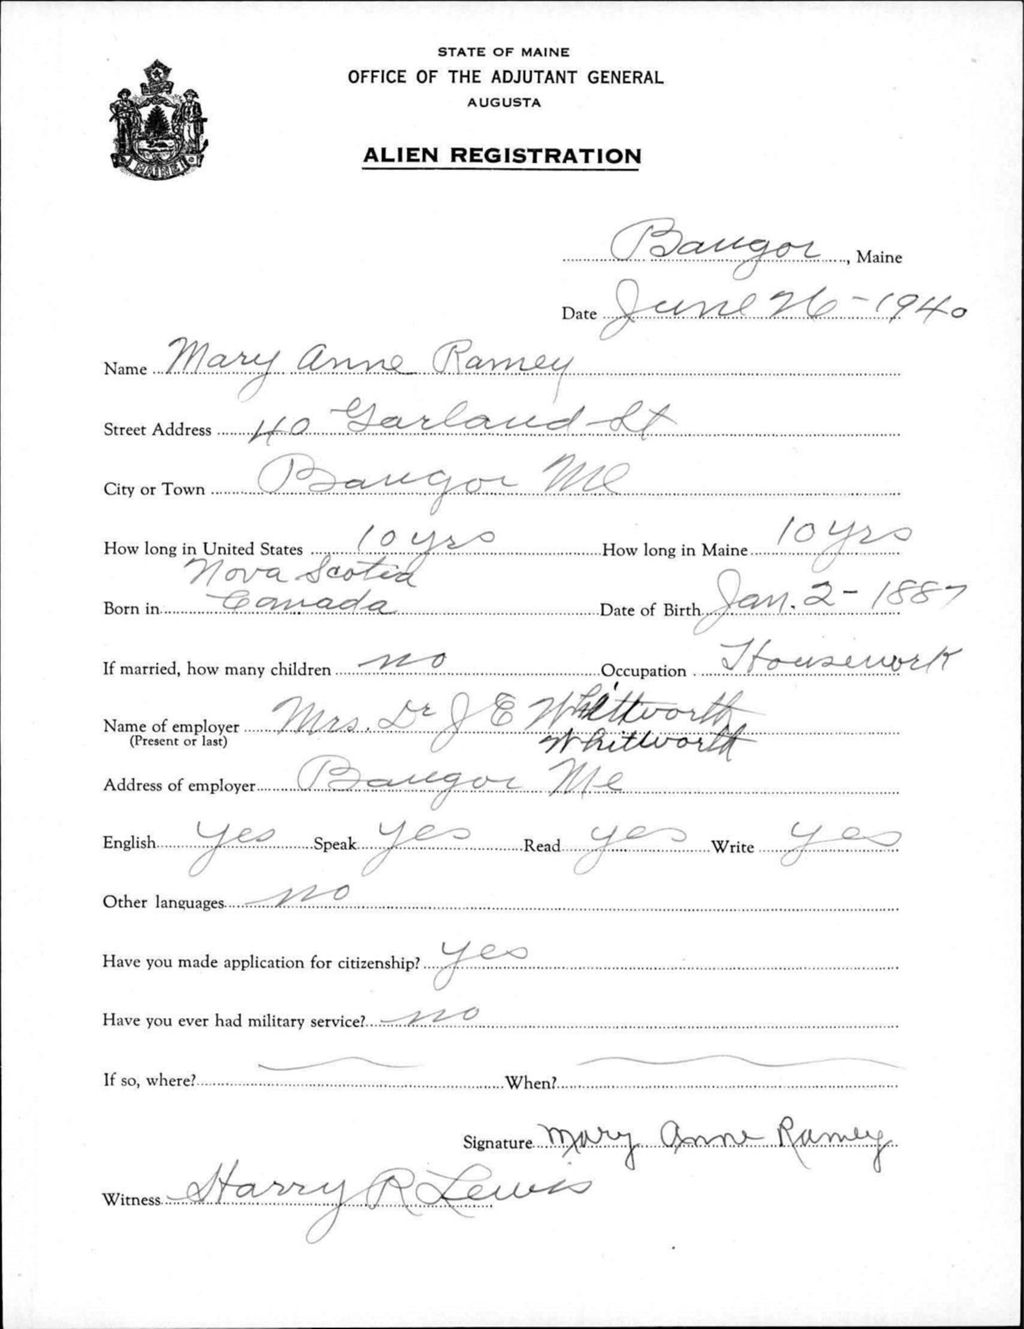 STATE OF MAINE
OFFICE OF THE ADJUTANT GENERAL
AUGUSTA
ALIEN REGISTRATION
MAINE
Bangor, Maine
Date June 26-1940
Name Mary Anne Ramey
Street Address 40 Garland St
City or Town Bangor Me
How long in United States 10 yrs How long in Maine 10 yrs
Nova Scotia
Born in Canada Date of Birth Jan. 2-1887
If married, how many children no Occupation Housework
Name of employer Mrs. Dr J E Whittworth
(Present or last) Whittworth
Address of employer Bangor Me
English yes Speak yes Read yes Write yes
Other languages no
Have you made application for citizenship? yes
Have you ever had military service? no
If so, where? When?
Signature Mary Anne Ramey
Witness Harry R Lewis